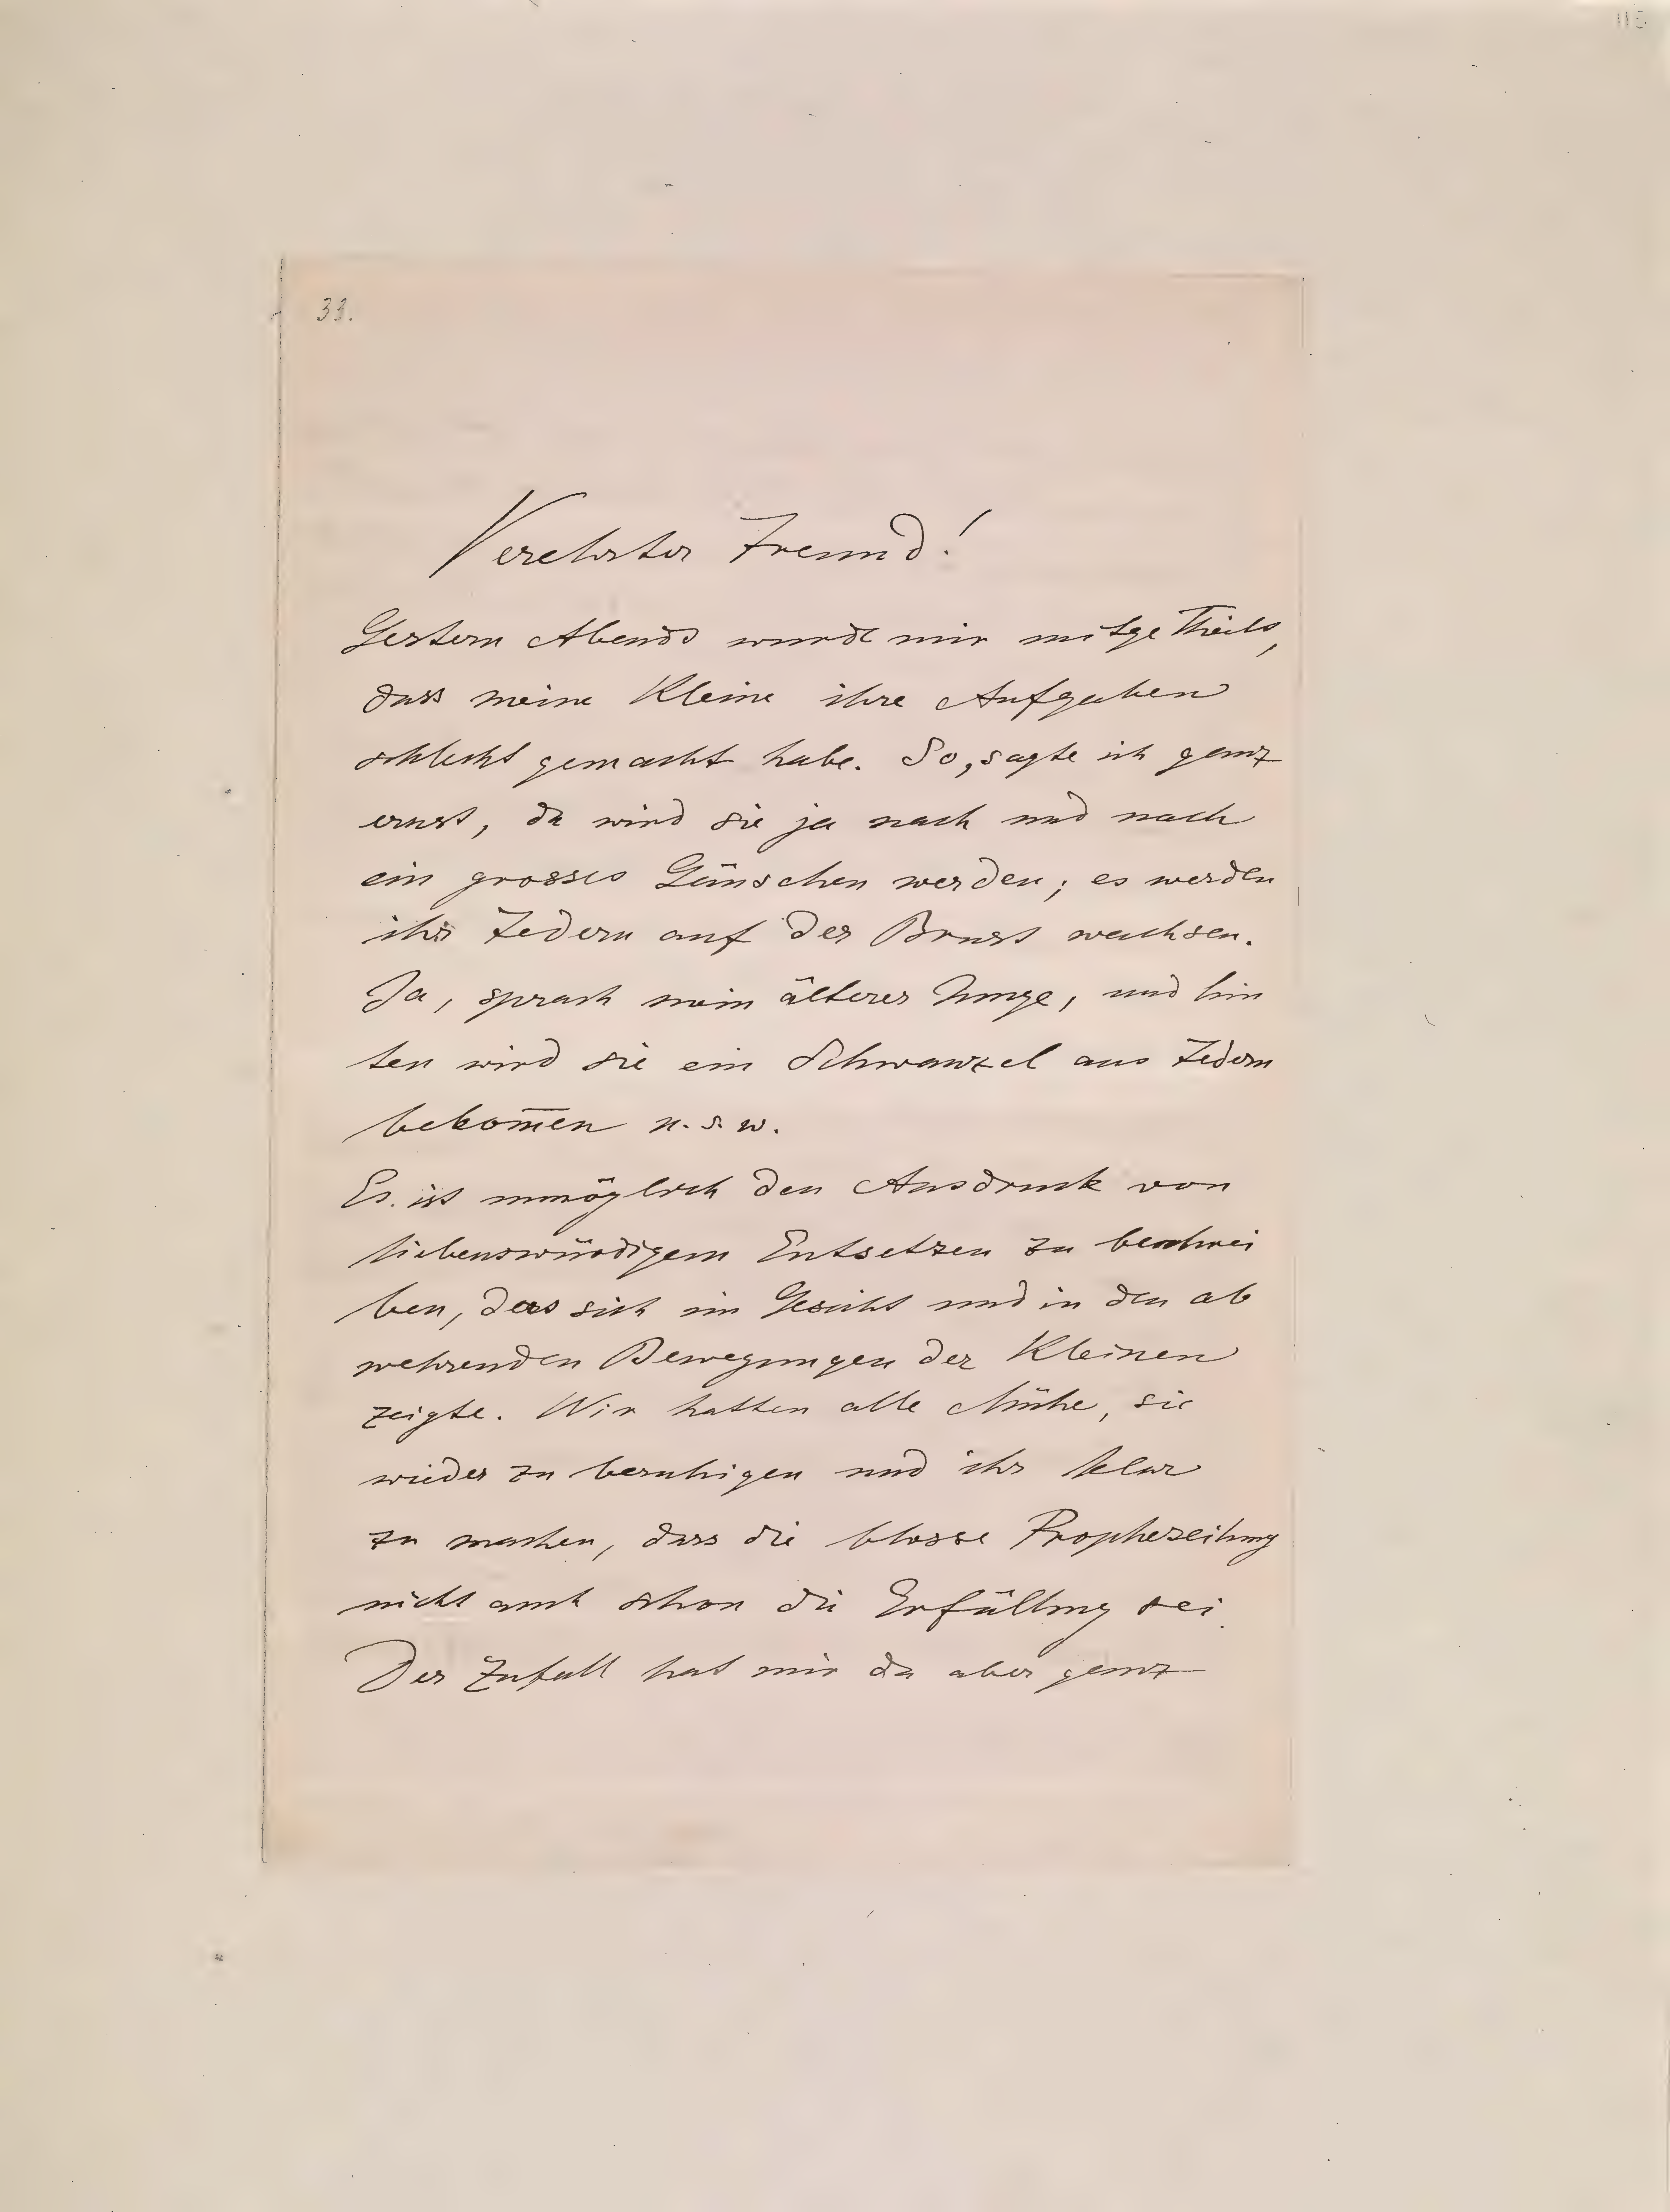 33.
Verehrter Freund!
Gestern Abends wurde mir mitgetheilt,
dass meine Kleine ihre Aufgaben
schlecht gemacht habe. So, sagte ich ganz
ernst, da wird sie ja nach und nach
ein grosses Gänschen werden; es werden
ihr Federn auf der Brust wachsen.
Ja, sprach mein älterer Junge, und hin
ten wird sie ein Schwanzel aus Federn
bekom̅en u. s. w.
Es ist unmöglich den Ausdruck von
liebenswürdigem Entsetzen zu beschrei
ben, das sich im Gesicht und in den ab
wehrenden Bewegungen der Kleinen
zeigte. Wir hatten alle Mühe, sie
wieder zu beruhigen und ihr klar
zu machen, dass die blosse Prophezeihung
nicht auch schon die Erfüllung sei.
Der Zufall hat mir da aber ganz